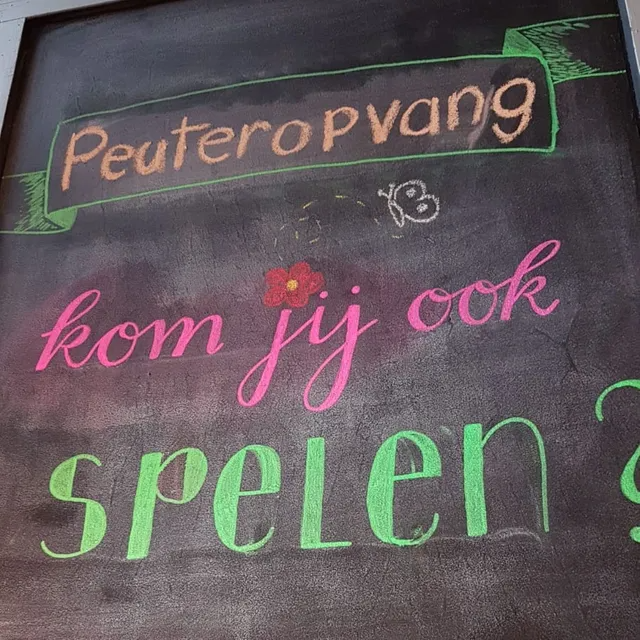 Peuteropvang
kom jij ook
speLen ?